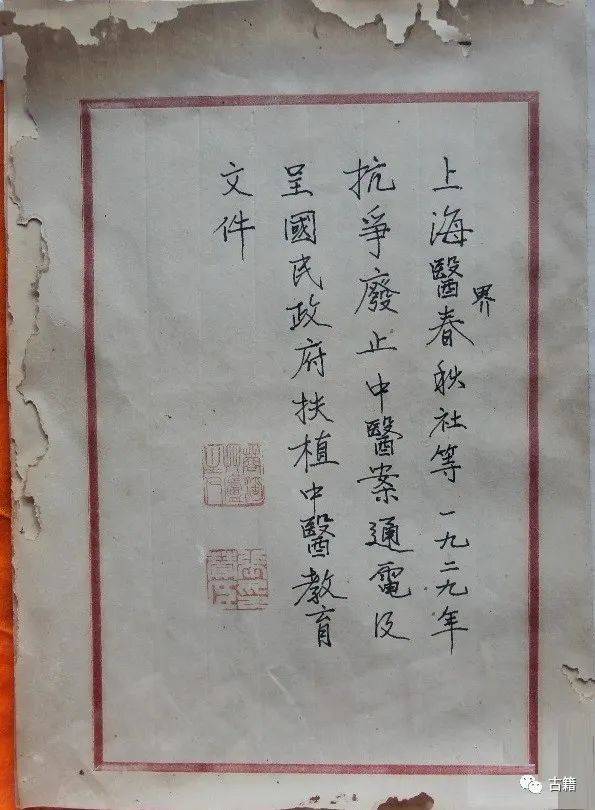 上海醫界春秋社等一九二九年
抗爭廢止中醫案通電及
呈國民政府扶植中醫教育
文件
古籍